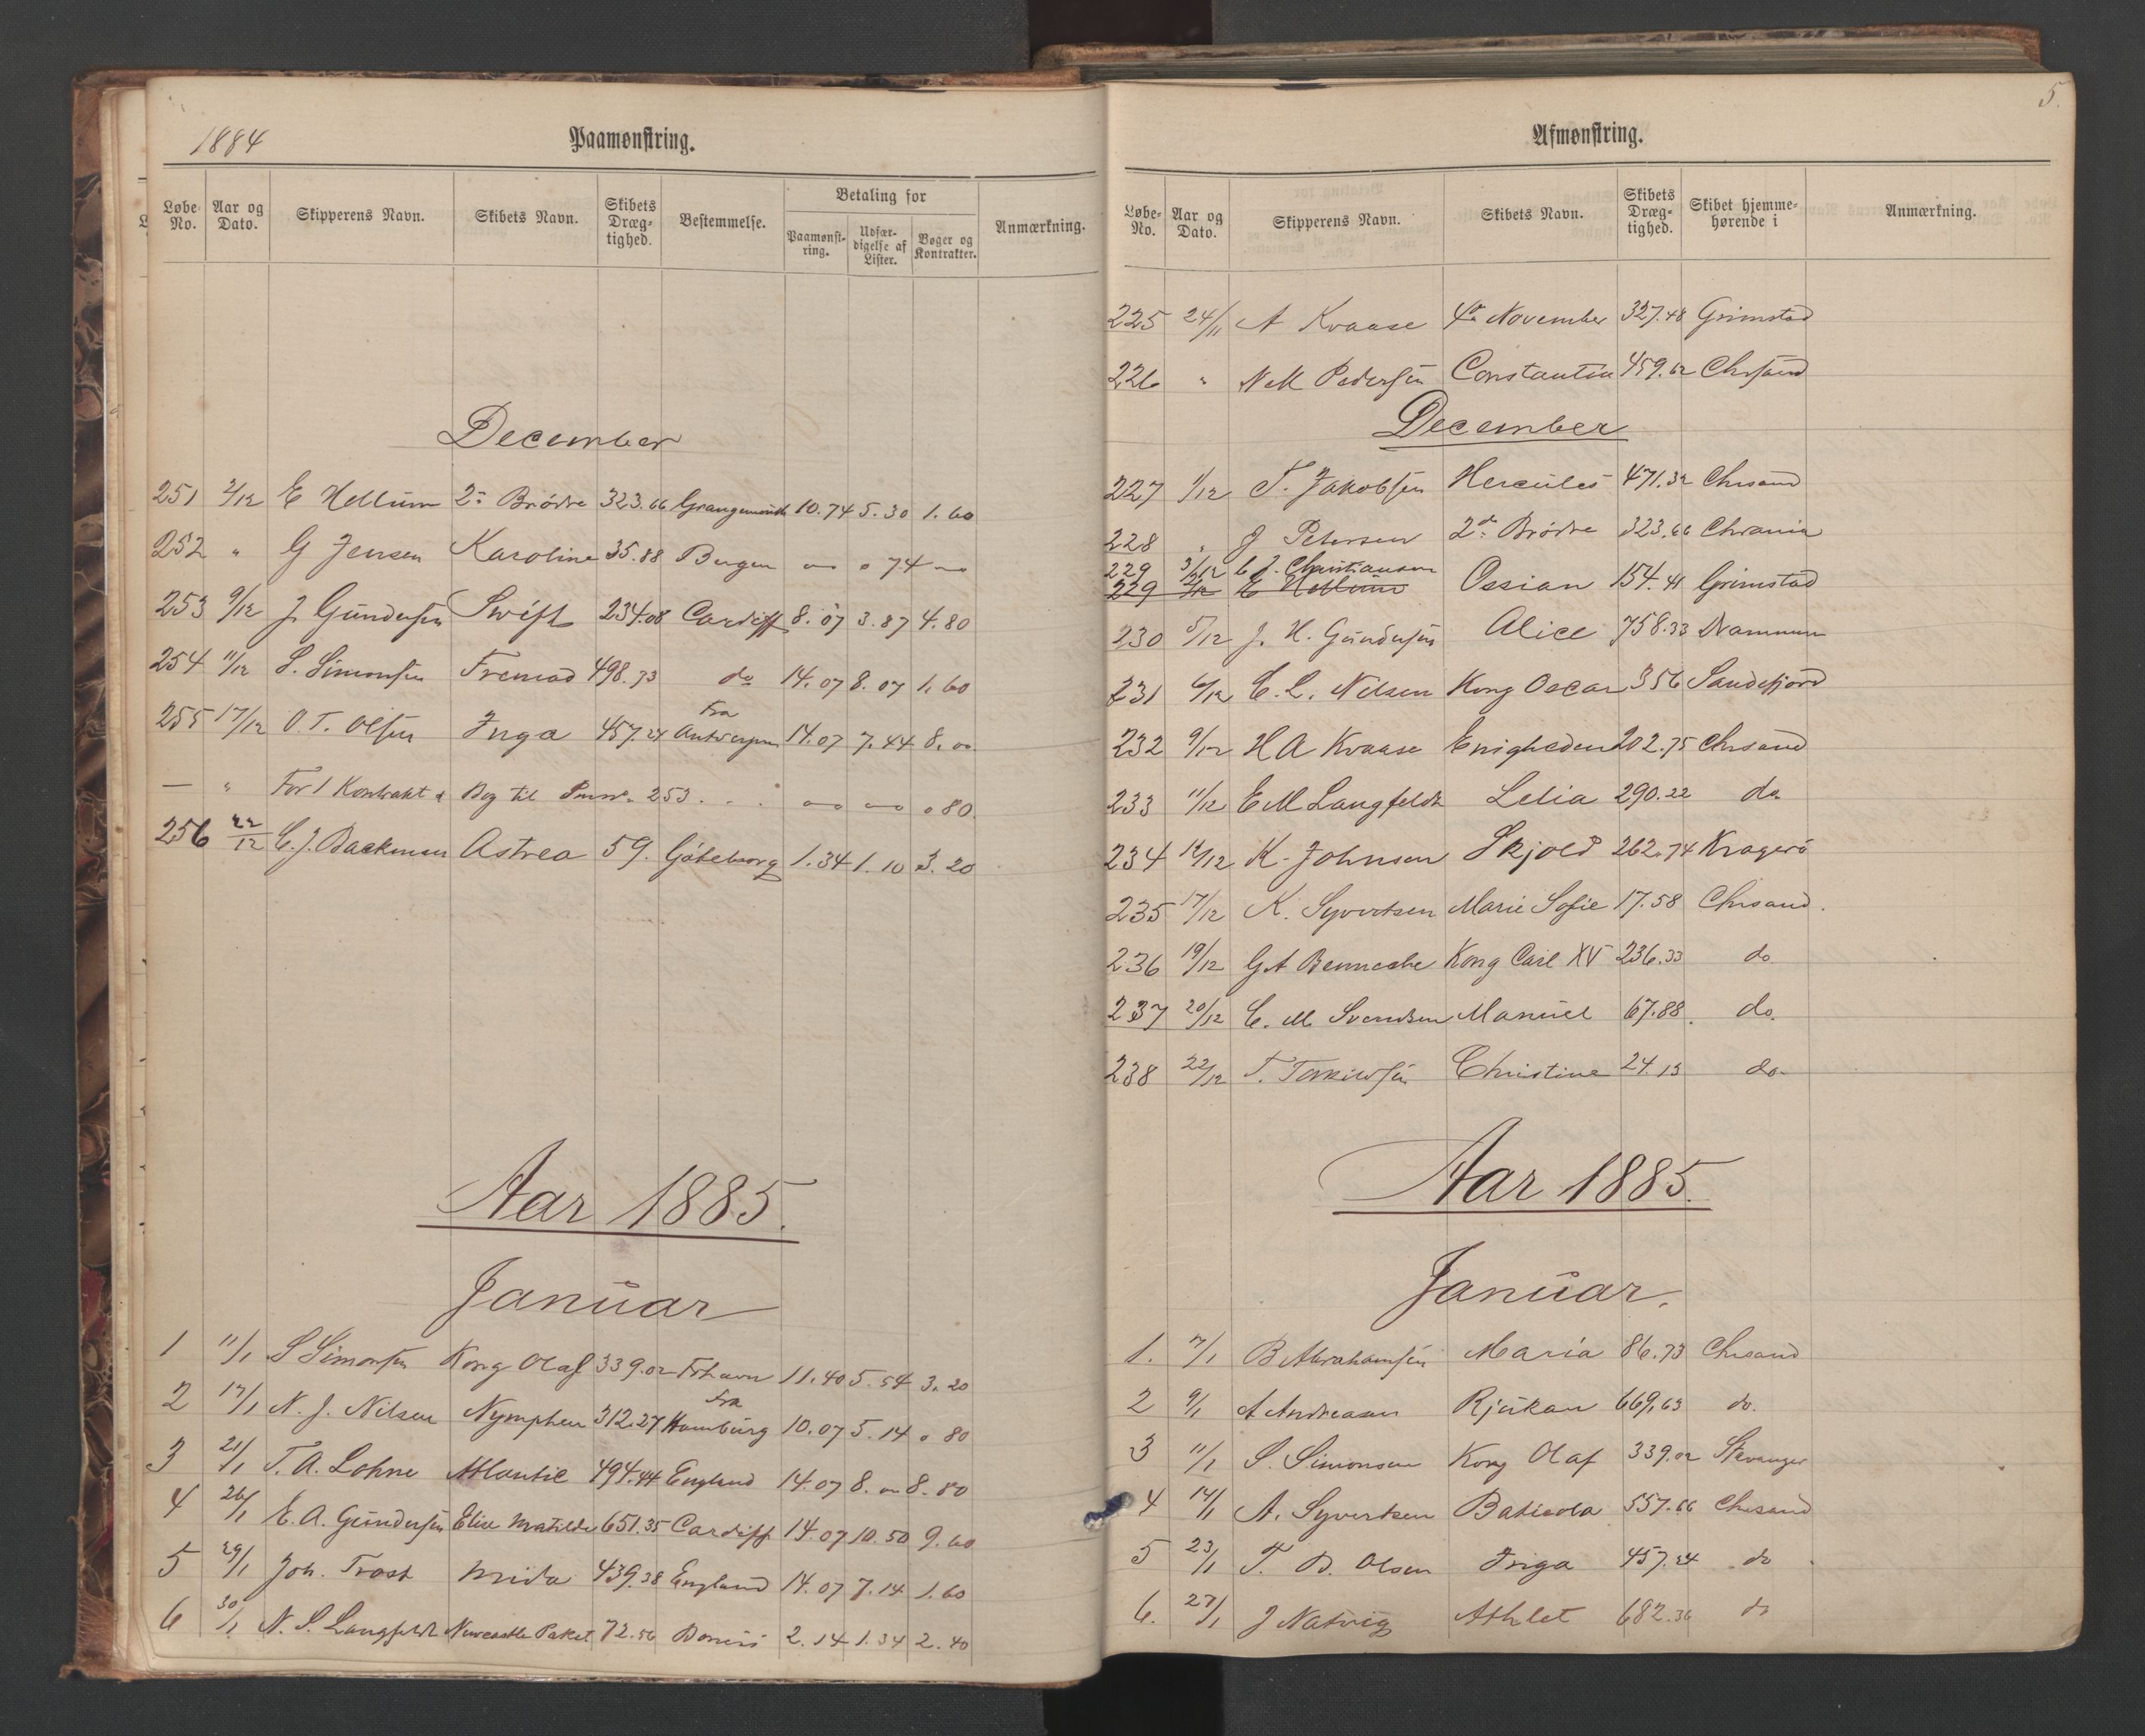 1884
Paamønstring.
Løbe-No. Aar og Dato. Skipperens Navn. Skibets Navn. Skibets Dræg-tighed. Bestemmelse. Betaling for Paamønst-ring. Udfær-digelse af Lister. Bøger og Kontrakter. Anmærkning.
December
251 2/12 E Hellum 2de Brødre 323.66 Grangemouth 10.74 5.30 1.60
252 " G Jensen Karoline 35.88 Bergen — " 74 —
253 9/12 J Gundersen Swift 234.08 Cardiff 8.07 3.87 4.80
254 11/12 S. Simonsen Fremad 498.73 do 14.07 8.07 1.60
255 17/12 O. T. Olsen Inga 457.24 Fra Antwerpen 14.07 7.44 8.00
— " For 1 Kontrakt & Bog til 253 . . . — — " 80
256 22/12 C. J. Backman Astrea 59. Göteborg 1.34 1.10 3.20
Aar 1885.
Januar
1 11/1 S Simonsen Kong Olaf 339.02 Frhavn 11.40 5.54 3.20
2 17/1 N. J. Nilsen Nymphen 312.27 Fra Hamburg 10.07 5.14 " 80
3 21/1 T. A. Lohne Atlantic 494.44 England 14.07 8." 8.80
4 26/1 E. A. Gundersen Elise Matilde 651.35 Cardiff 14.07 10.50 9.60
5 29/1 Joh. Trost 439.38 England 14.07 7.14 1.60
6 30/1 N. S. Langfeldt Newcastle Paket 72.56 2.14 1.34 2.40
5.
Afmønstring.
Løbe-No. Aar og Dato. Skipperens Navn. Skibets Navn. Skibets Dræg-tighed. Skibet hjemme-hørende i Anmærkning.
225 24/11 A Kvaase 4de November 327.48 Grimstad
226 " N M Pedersen Constantin 459.62 Chrsand
December
227 1/12 T. Jakobsen Hercules 471.32 Chrsand
228 " J Petersen 2de Brødre 323.66 Chrania
229 3/12 C J. Christiansen
229 2/12 E Hellum Ossian 154.41 Grimstad
230 5/12 J. H. Gundersen Alice 758.33 Drammen
231 6/12 C. L. Nilsen Kong Oscar 356 Sandefjord
232 9/12 H A Kvaase Enigheden 202.75 Chrsand
233 11/12 E M Langfeldt Lelia 290.22 do
234 12/12 K. Johnsen Skjold 262.74 Kragerö
235 17/12 K. Syvertsen Marie Sofie 17.58 Chrsand.
236 19/12 G A Benneche Kong Carl XV 236.33 do
237 20/12 C. M Svendsen Manuel 67.88. do.
238 22/12 T. Torkildsen Christine 24.13 do.
Aar 1885.
Januar.
1. 7/1 B Abrahamsen Maria 86.73 Chrsand
2 9/1 A Andreasen Rjukan 669,63 do.
3 11/1 S. Simonsen Kong Olaf 339.02 Stavanger
4 14/1 A. Syvertsen Baticola 557.66 Chrsand
5 23/1 T. B. Olsen Inga 457.24 do
6. 27/1 J Natvig Athlet 682.36 do